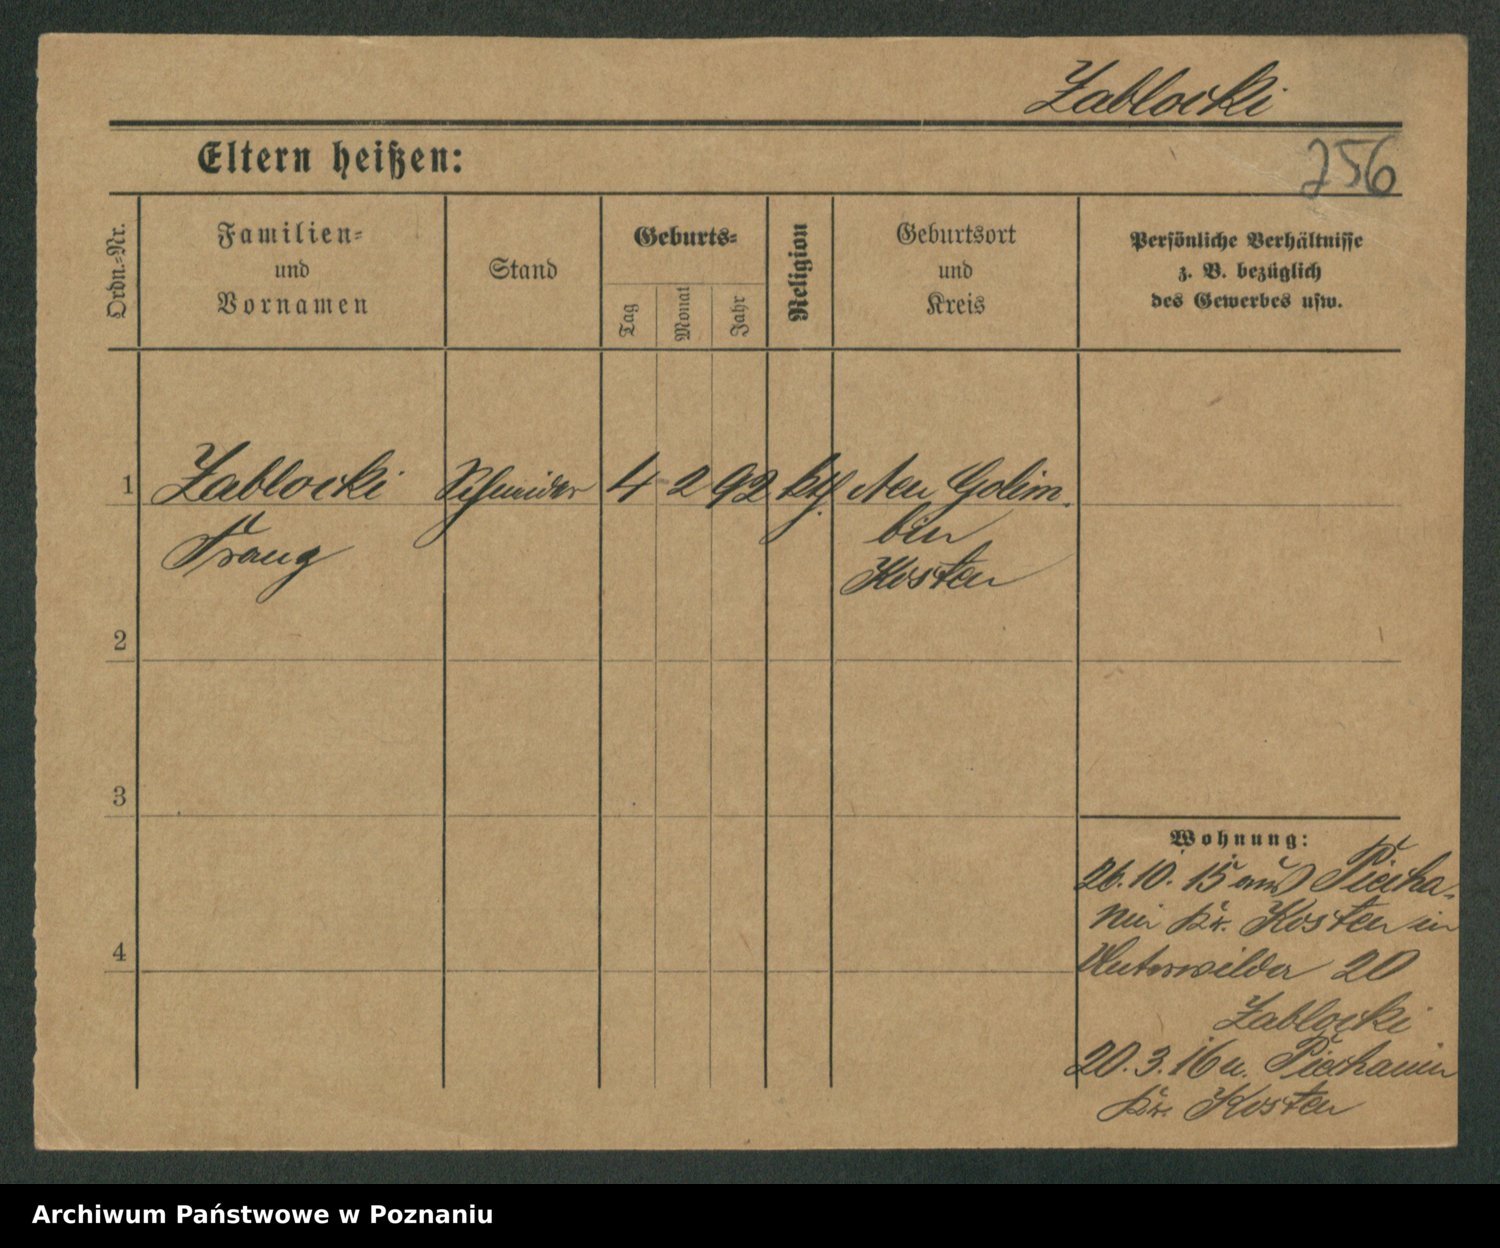 Zablocki
Eltern heißen:
756
Ordn.-Nr.
Familien-
und
Vornamen
Stand
Geburts-
Tag
Monat
Jahr
Religion
Geburtsort
und
Kreis
Persönliche Verhältnisse
z. B. bezüglich
des Gewerbes usw.
1 Zablocki Schneider 4 2 92 kth. Neu Golem-
bin
Franz
Kosten
2
3
4
Wohnung:
26.10.15 aus Piecha-
nin Kr. Kosten in
Unterwilda 20
Zablocki
20.3.16 n. Piechanin
Kr. Kosten
Archiwum Państwowe w Poznaniu